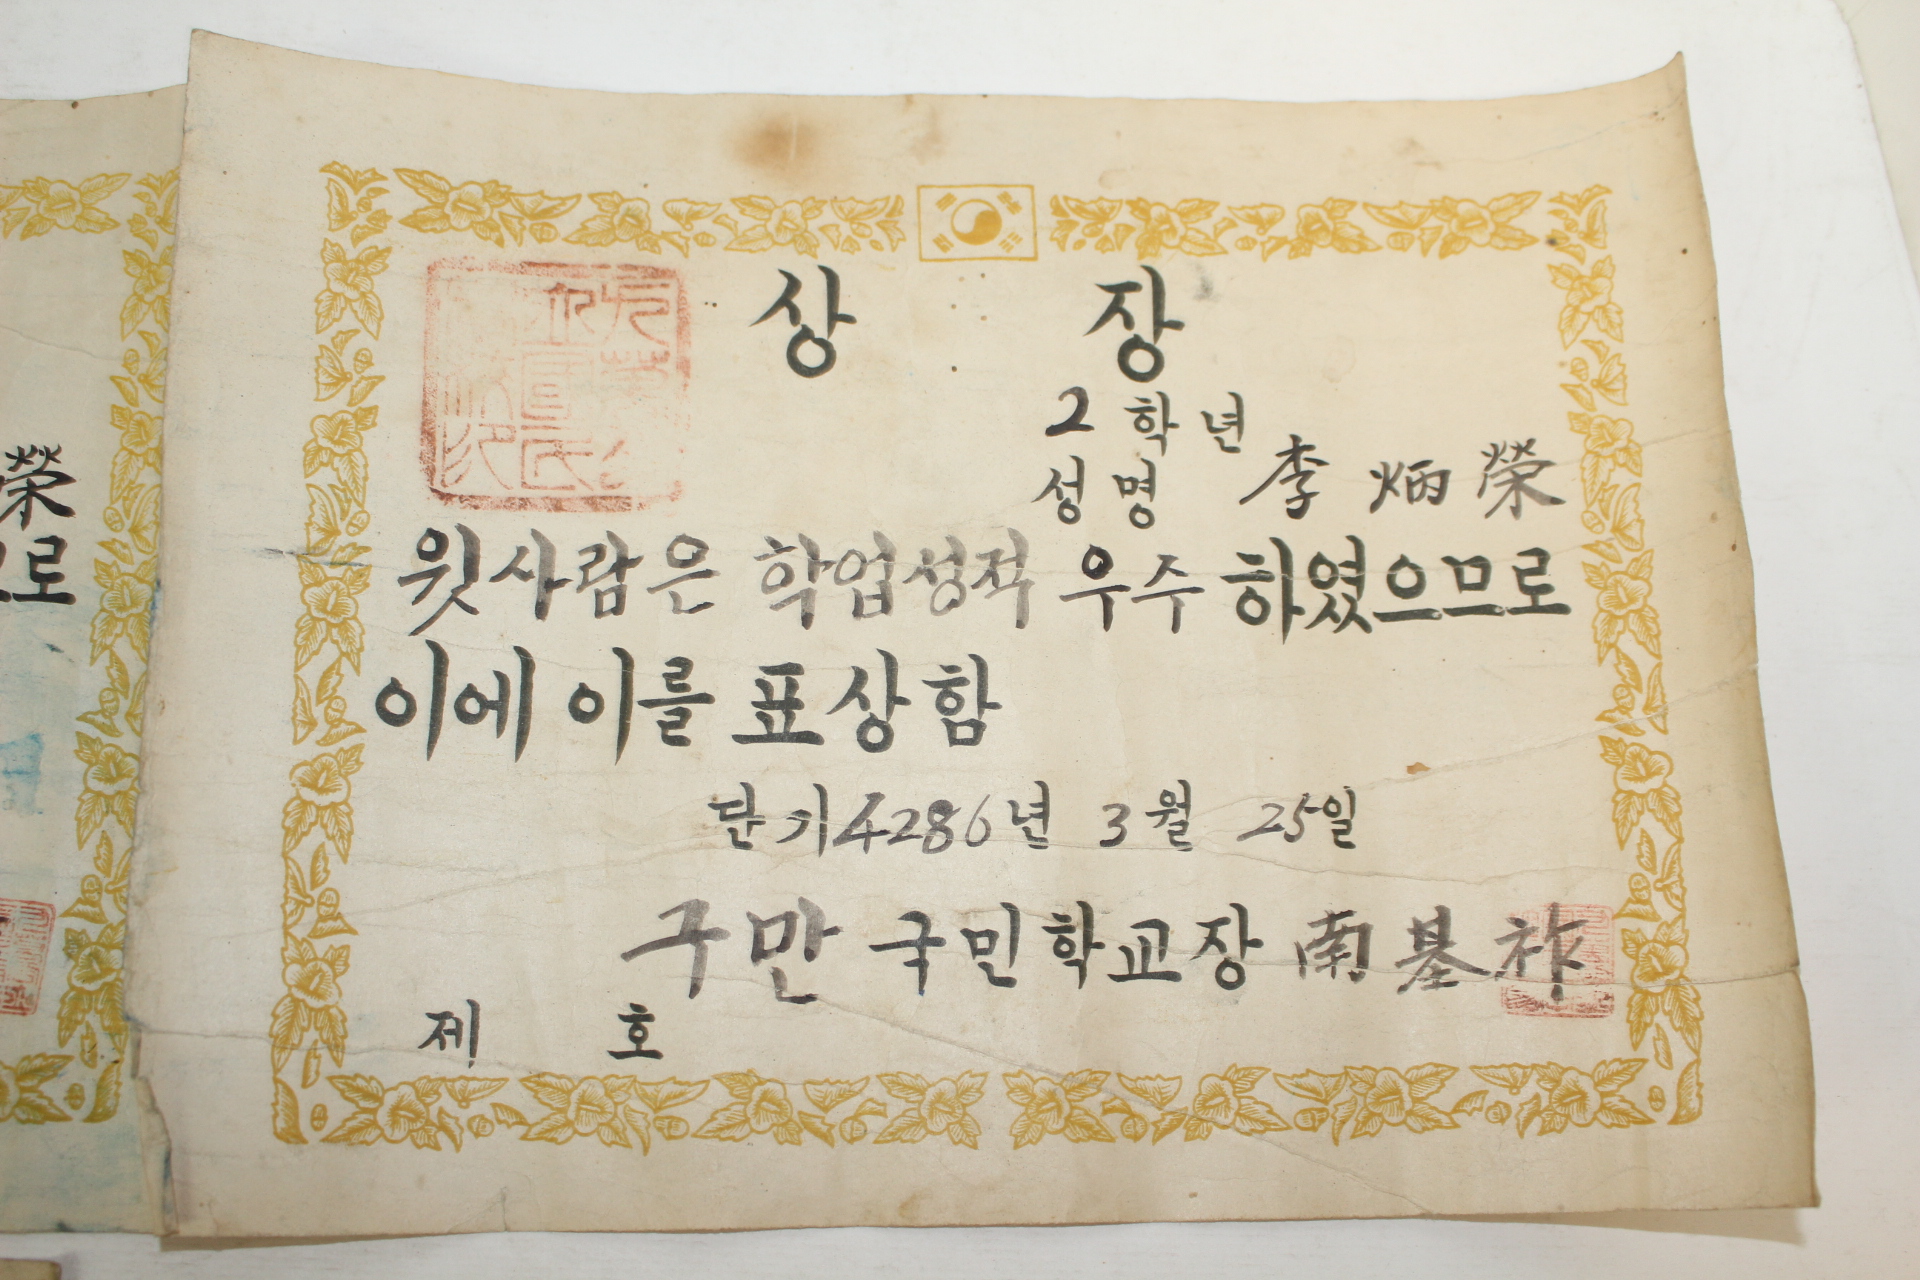 상 장
2 학 년
성 명 李 炳 榮
윗사람은 학업성적 우주 하였으므로
이에 이를 표상함
단기 4286년 3월 25일
구만 국민학교장 南 基 祚
제 호
榮
로